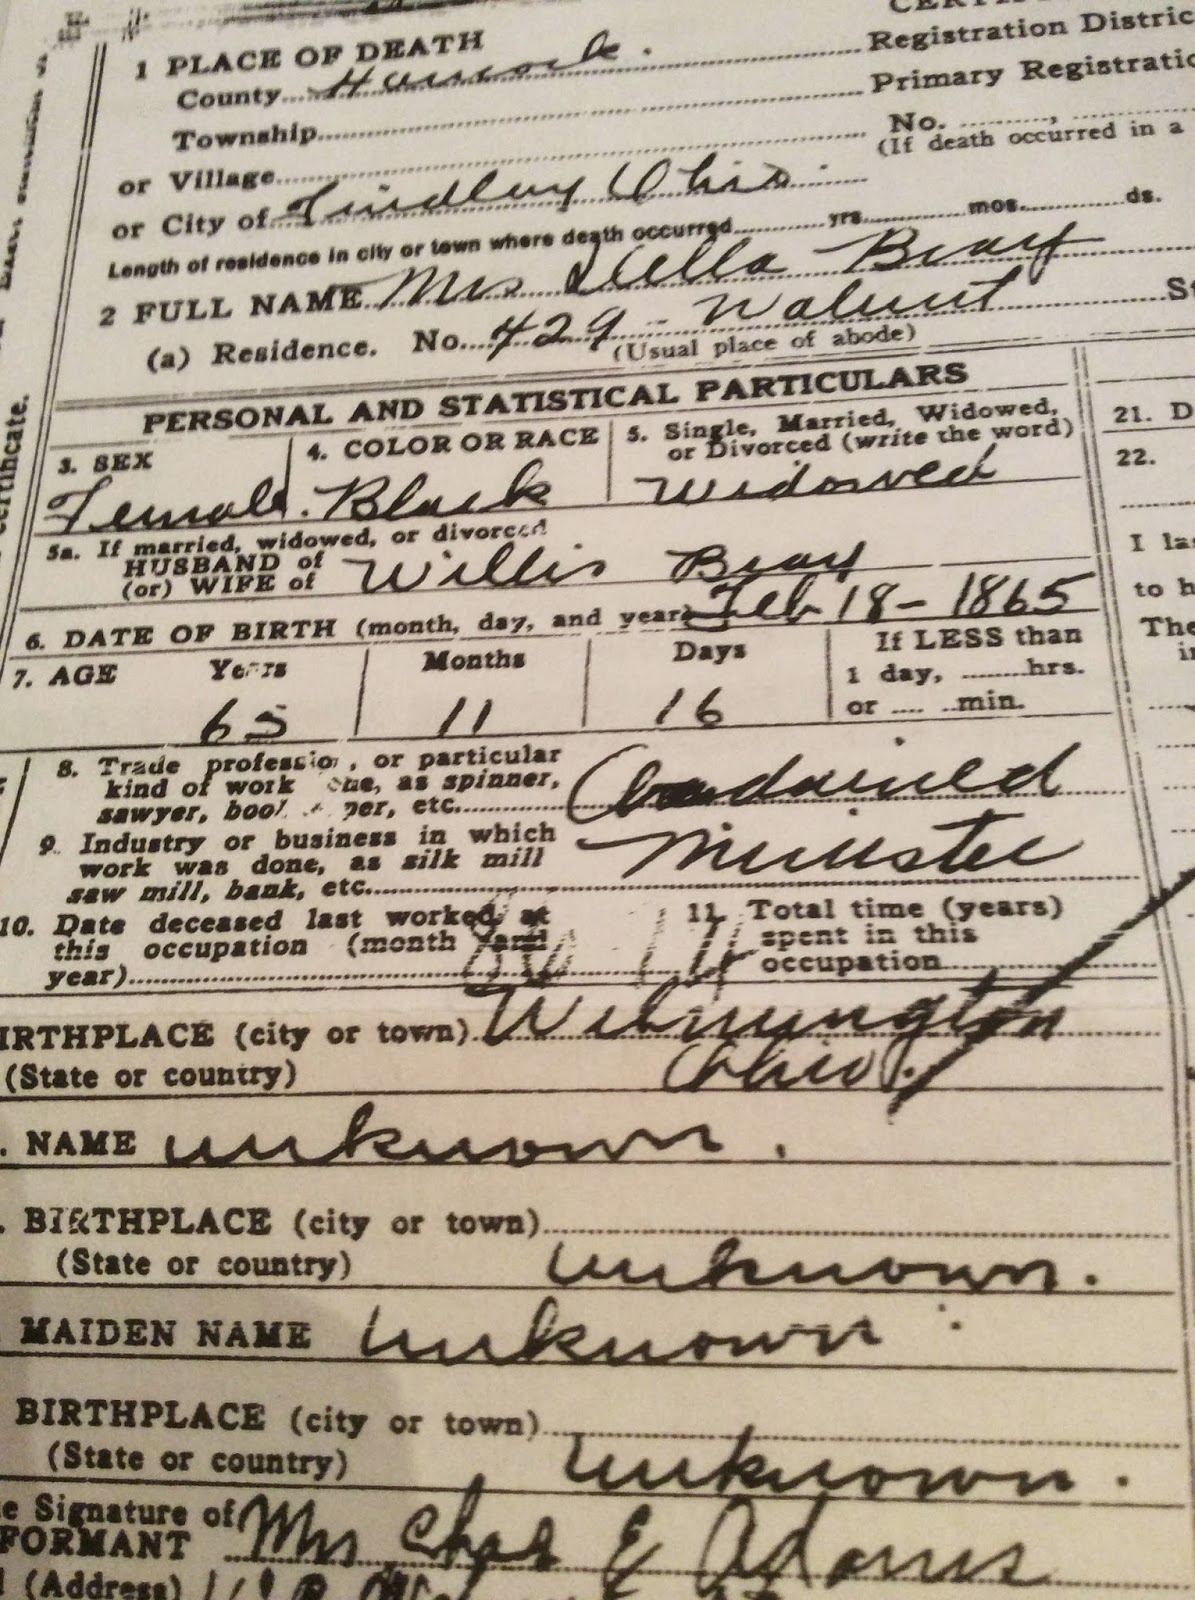 1 PLACE OF DEATH
County Hancock. Registration Distric
Township Primary Registratio
or Village No.
(If death occurred in a
or City of Findlay Ohio.
Length of residence in city or town where death occurred yrs. mos. ds.
2 FULL NAME Mrs Della Bray
(a) Residence. No. 429 - Walnut St
(Usual place of abode)
PERSONAL AND STATISTICAL PARTICULARS
3. SEX 4. COLOR OR RACE 5. Single, Married, Widowed,
or Divorced (write the word)
Female. Black Widowed
5a. If married, widowed, or divorced
HUSBAND of
(or) WIFE of Willis Bray
6. DATE OF BIRTH (month, day, and year) Feb 18 - 1865
7. AGE Years Months Days If LESS than
1 day, hrs.
65 11 16 or min.
8. Trade profession, or particular
kind of work as spinner,
sawyer, etc.
9. Industry or business in which
work was done, as silk mill
saw mill, bank, etc. Minister
10. Date deceased last worked at
this occupation (month and
year)
11. Total time (years)
spent in this
occupation
IRTHPLACE (city or town) Wilmington
(State or country) Ohio.
. NAME unknown.
. BIRTHPLACE (city or town)
(State or country) unknown.
. MAIDEN NAME Unknown
BIRTHPLACE (city or town)
(State or country) unknown.
e Signature of
FORMANT Mrs Chas E Adams
(Address)
certificate.
21. D
22.
I la
to h
The
in